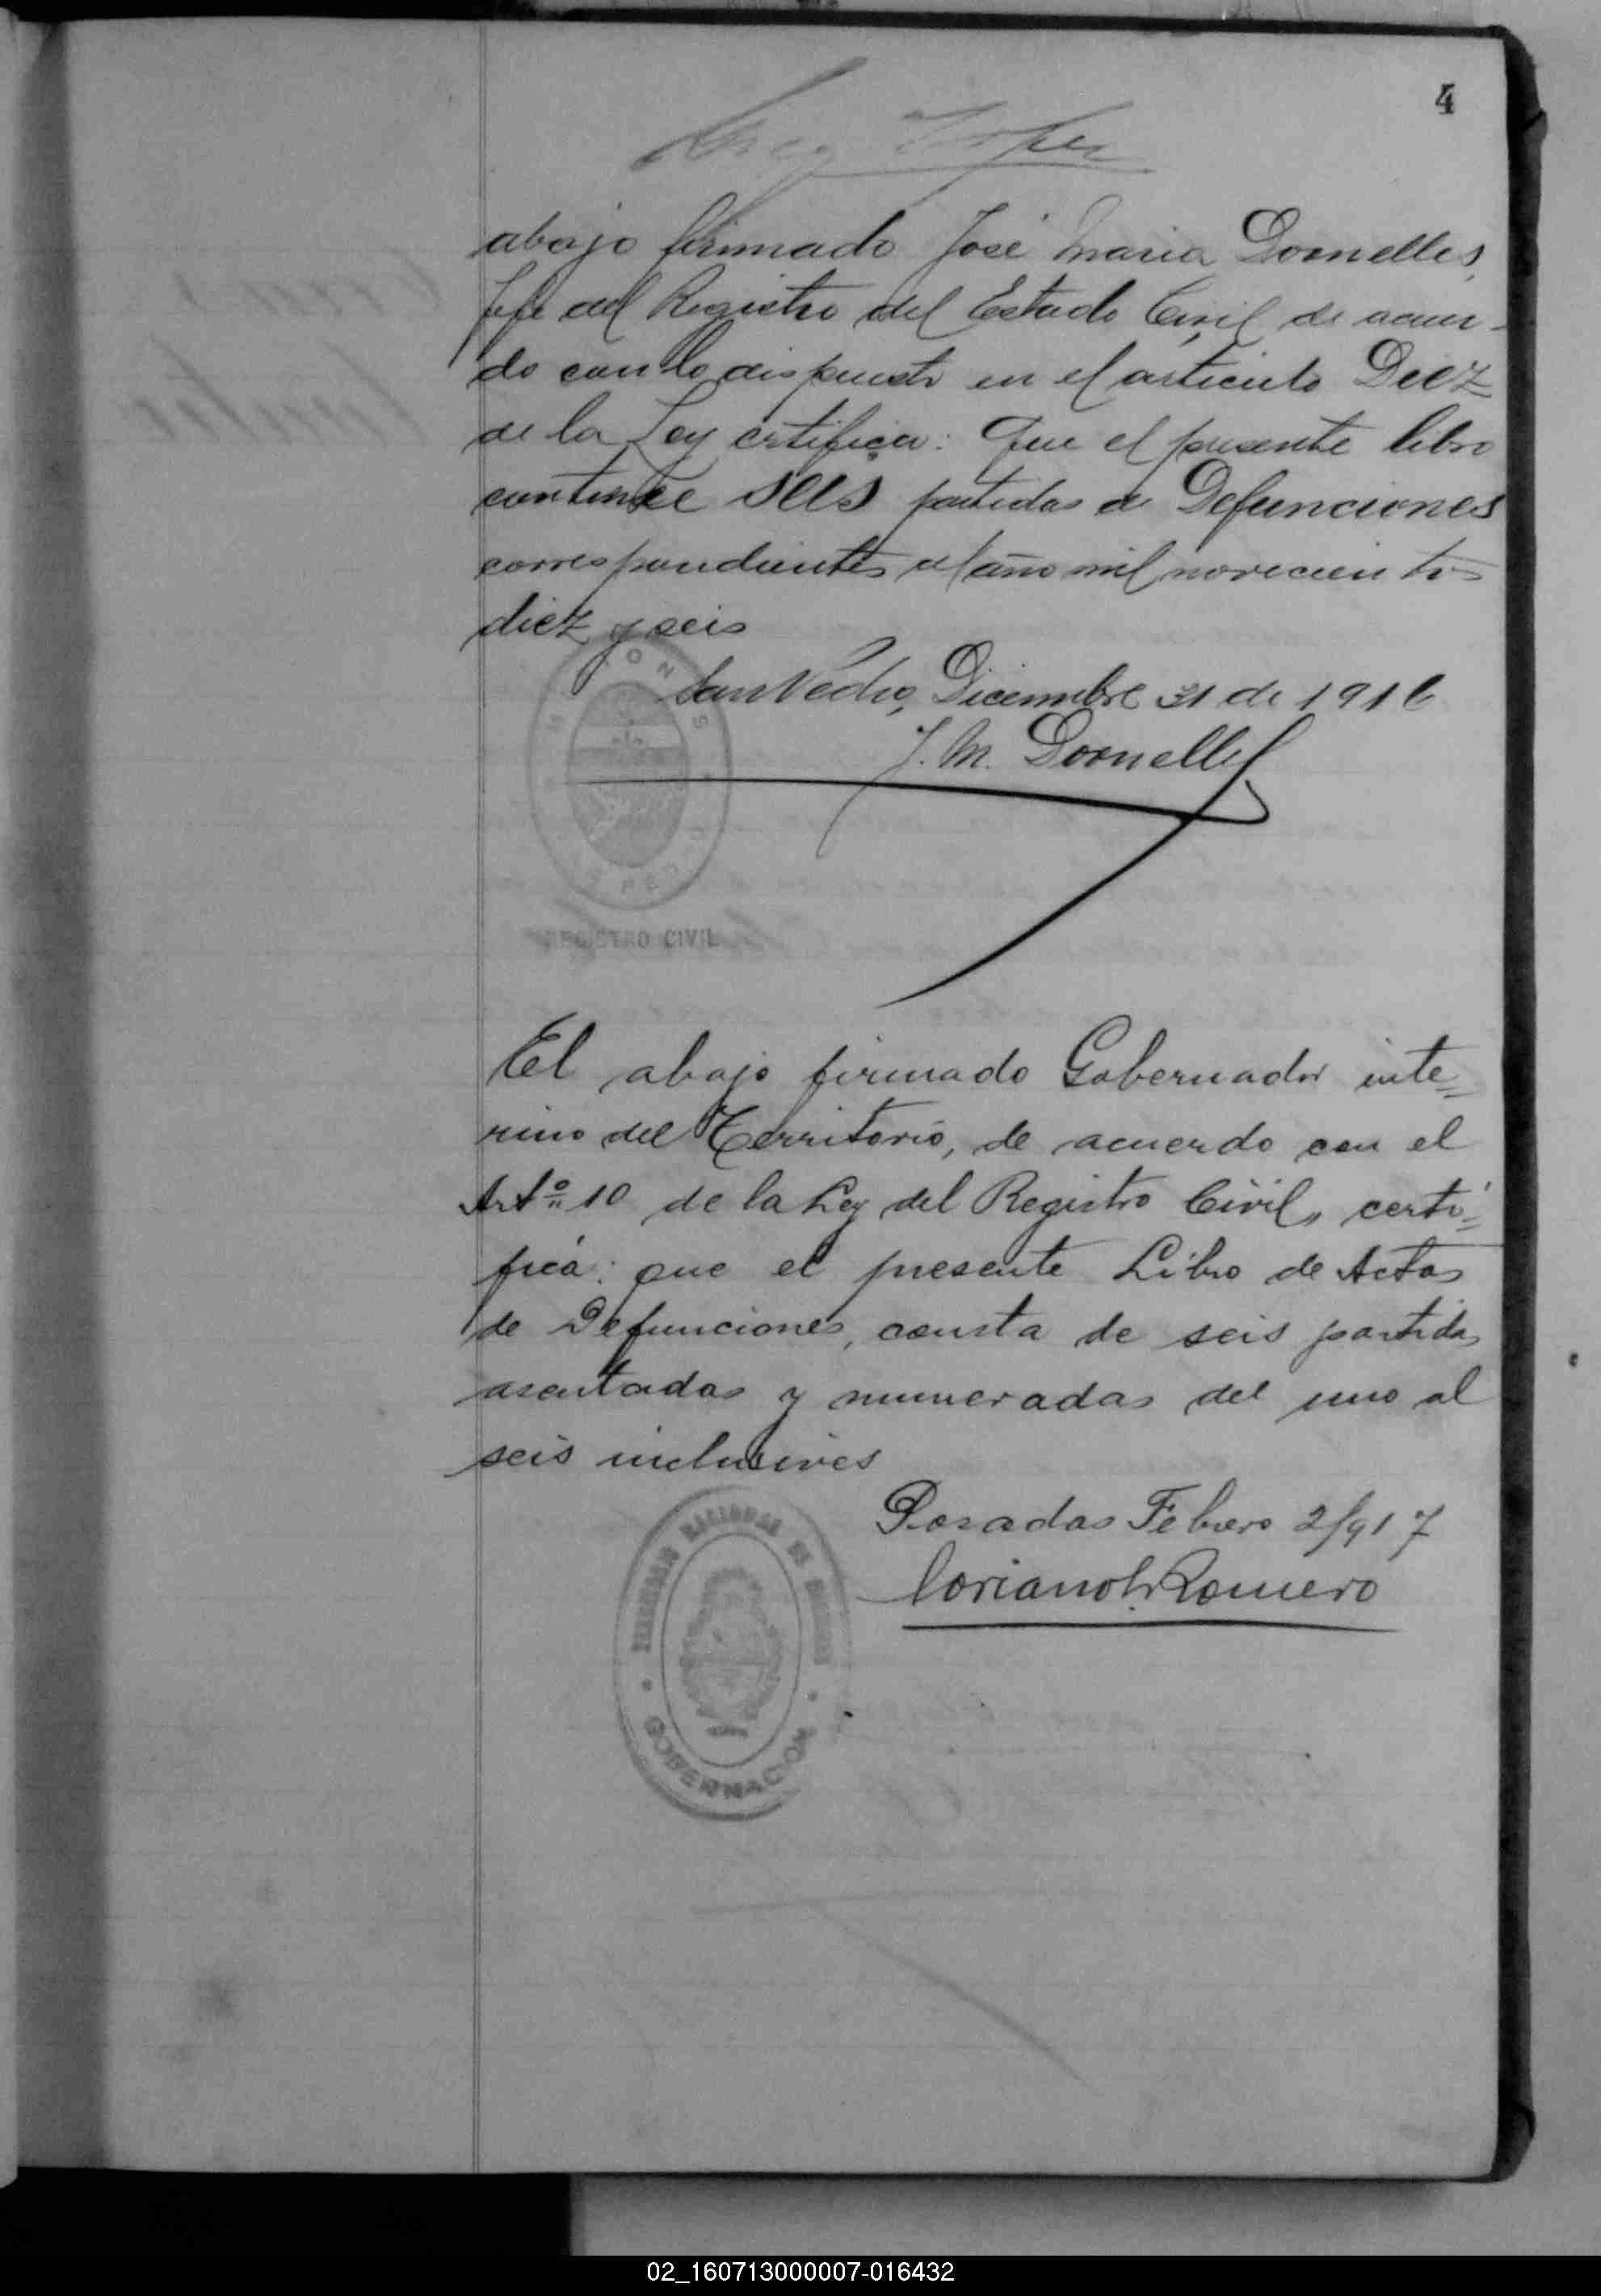 4
abajo firmado José Maria Dornelles,
Jefe del Registro del Estado Civil de acuer-
do con lo dispuesto en el artículo Diez
de la Ley certifica: Que el presente libro
contiene seis partidas de Defunciones
correspondientes al año mil novecientos
diez y seis
San Pedro, Diciembre 31 de 1916
J. M. Dornelles
REGISTRO CIVIL
El abajo firmado Gobernador inte=
rino del Territorio, de acuerdo con el
Artº 10 de la Ley del Registro Civil, certi=
fica: que el presente Libro de Actas
de Defunciones, consta de seis partidas
asentadas y numeradas del uno al
seis inclusives
Posadas Febrero 2/917
Romero
GOBERNACION
02_160713000007-016432